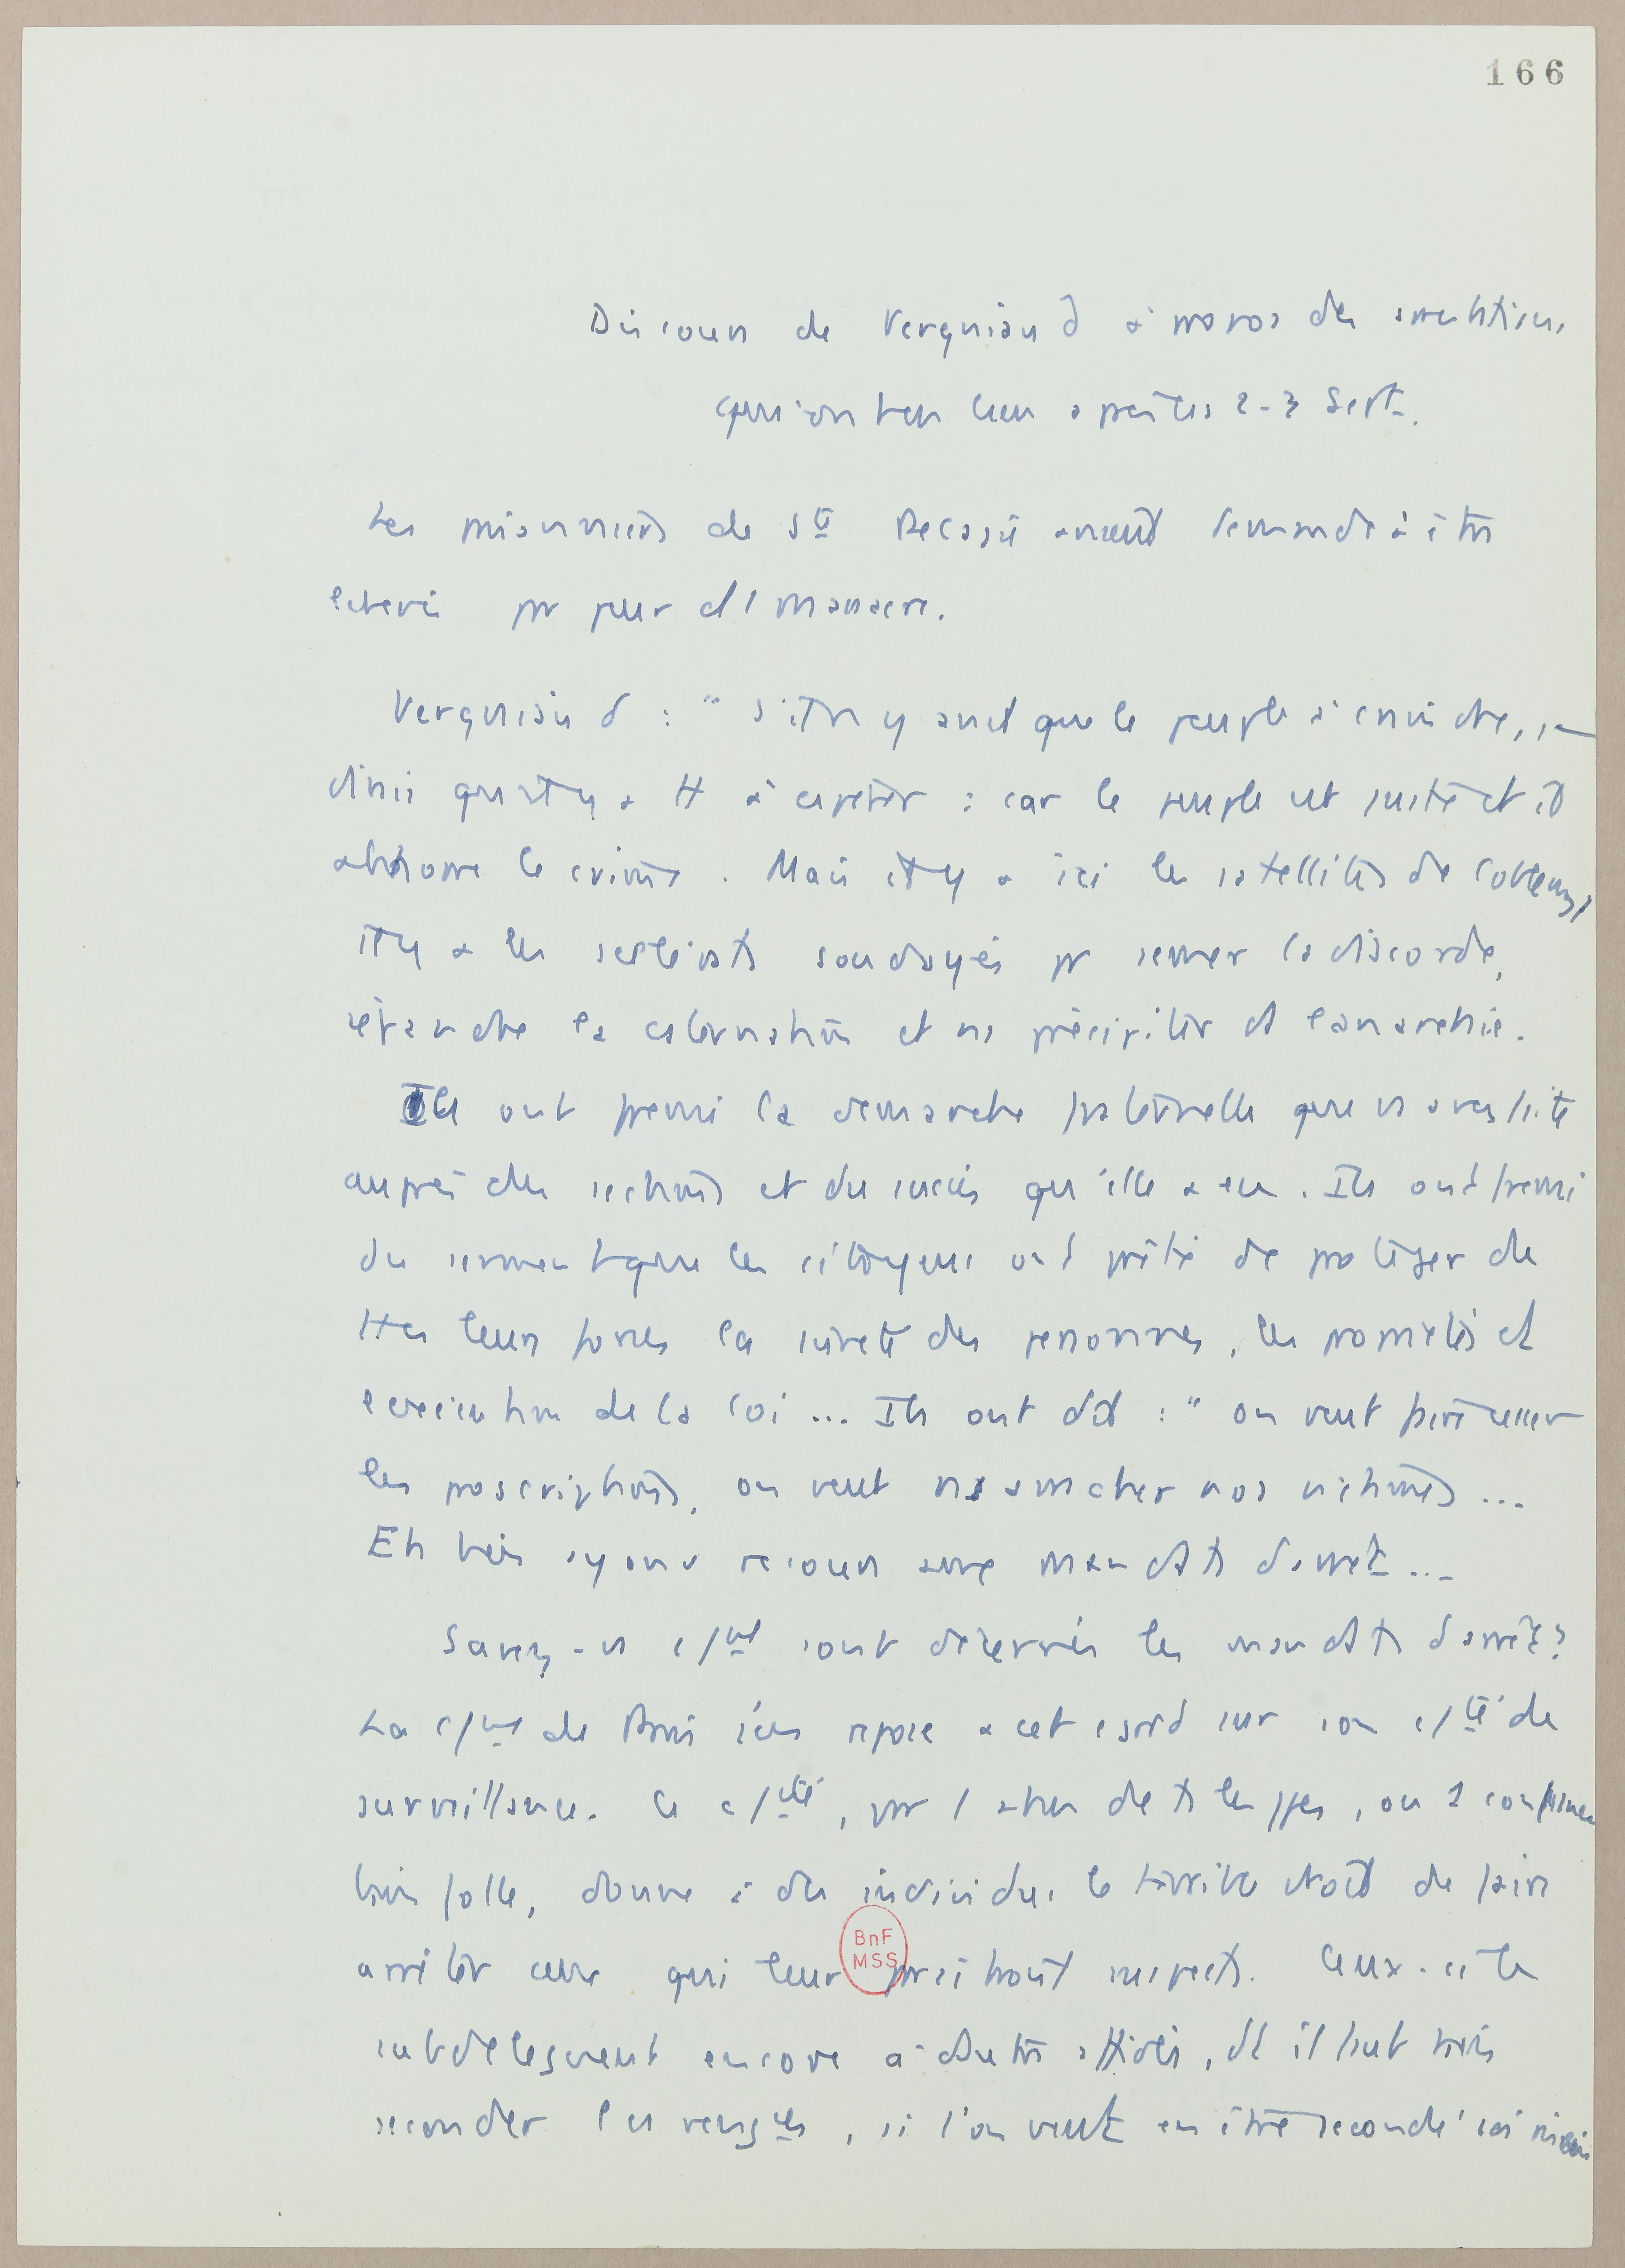 166
Discours de Vergniaud à propos des arrestations
qui ont eu lieu après les 2-3 Sept.
Les prisonniers de Ste Pélagie avaient demandé à être
libérés pr peur d'1 massacre.
Vergniaud : " s'il n'y avait que le peuple à craindre, je
dirais qu'il y a tt à espérer : car le peuple est juste et il
abhorre le crime. Mais il y a ici les satellites de Coblentz,
il y a des scélérats soudoyés pr semer la discorde,
répandre la consternation et ns précipiter ds l'anarchie.
Ils ont frémi la démarche paternelle que vs avez faite
auprès des sections et du succès qu'elle a eu. Ils ont frémi
du serment que les citoyens ont prêté de protéger de
ttes leurs forces la sûreté des personnes, les propriétés et
l'exécution de la loi ... Ils ont dit : " on veut faire cesser
les proscriptions, on veut ns arracher nos victimes ...
Eh bien ayons recours aux mandats d'arrêt ...
Savez-vs comment sont décernés les mandats d'arrêt ?
La Cne de Paris s'en repose à cet égard sur son cté de
surveillance. Ce cté, par 1 abus de ts les ppes, ou 1 confiance
bien folle, donne à des individus le terrible droit de faire
arrêter ceux qui leur paraîtront suspects. Ceux-ci le
subdélèguent encore à d'autres affidés, dt il faut bien
seconder les vengces, si l'on veut en être secondé soi même
BnF
MSS